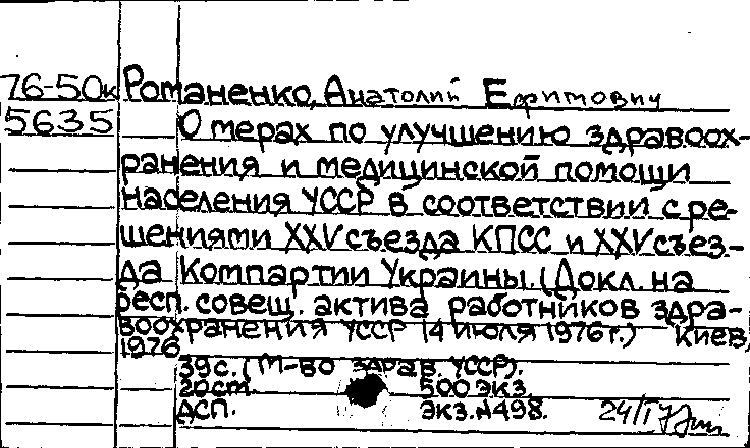 76-5.0к Романенко, Анатолий Ефимович
5635 О мерах по улучшению здравоох-
ранения и медицинской помощи
населения УССР в соответствии с ре-
шениями XXV съезда КПСС и XXV съез-
да Компартии Украины. (Докл. на
респ. совещ. актива работников здра-
воохранения УССР 14 июля 1976 г.) Киев,
1976
39 с. (М-во здрав. УССР).
20 см. 500 экз.
ДСП. Экз. №498. 24/I